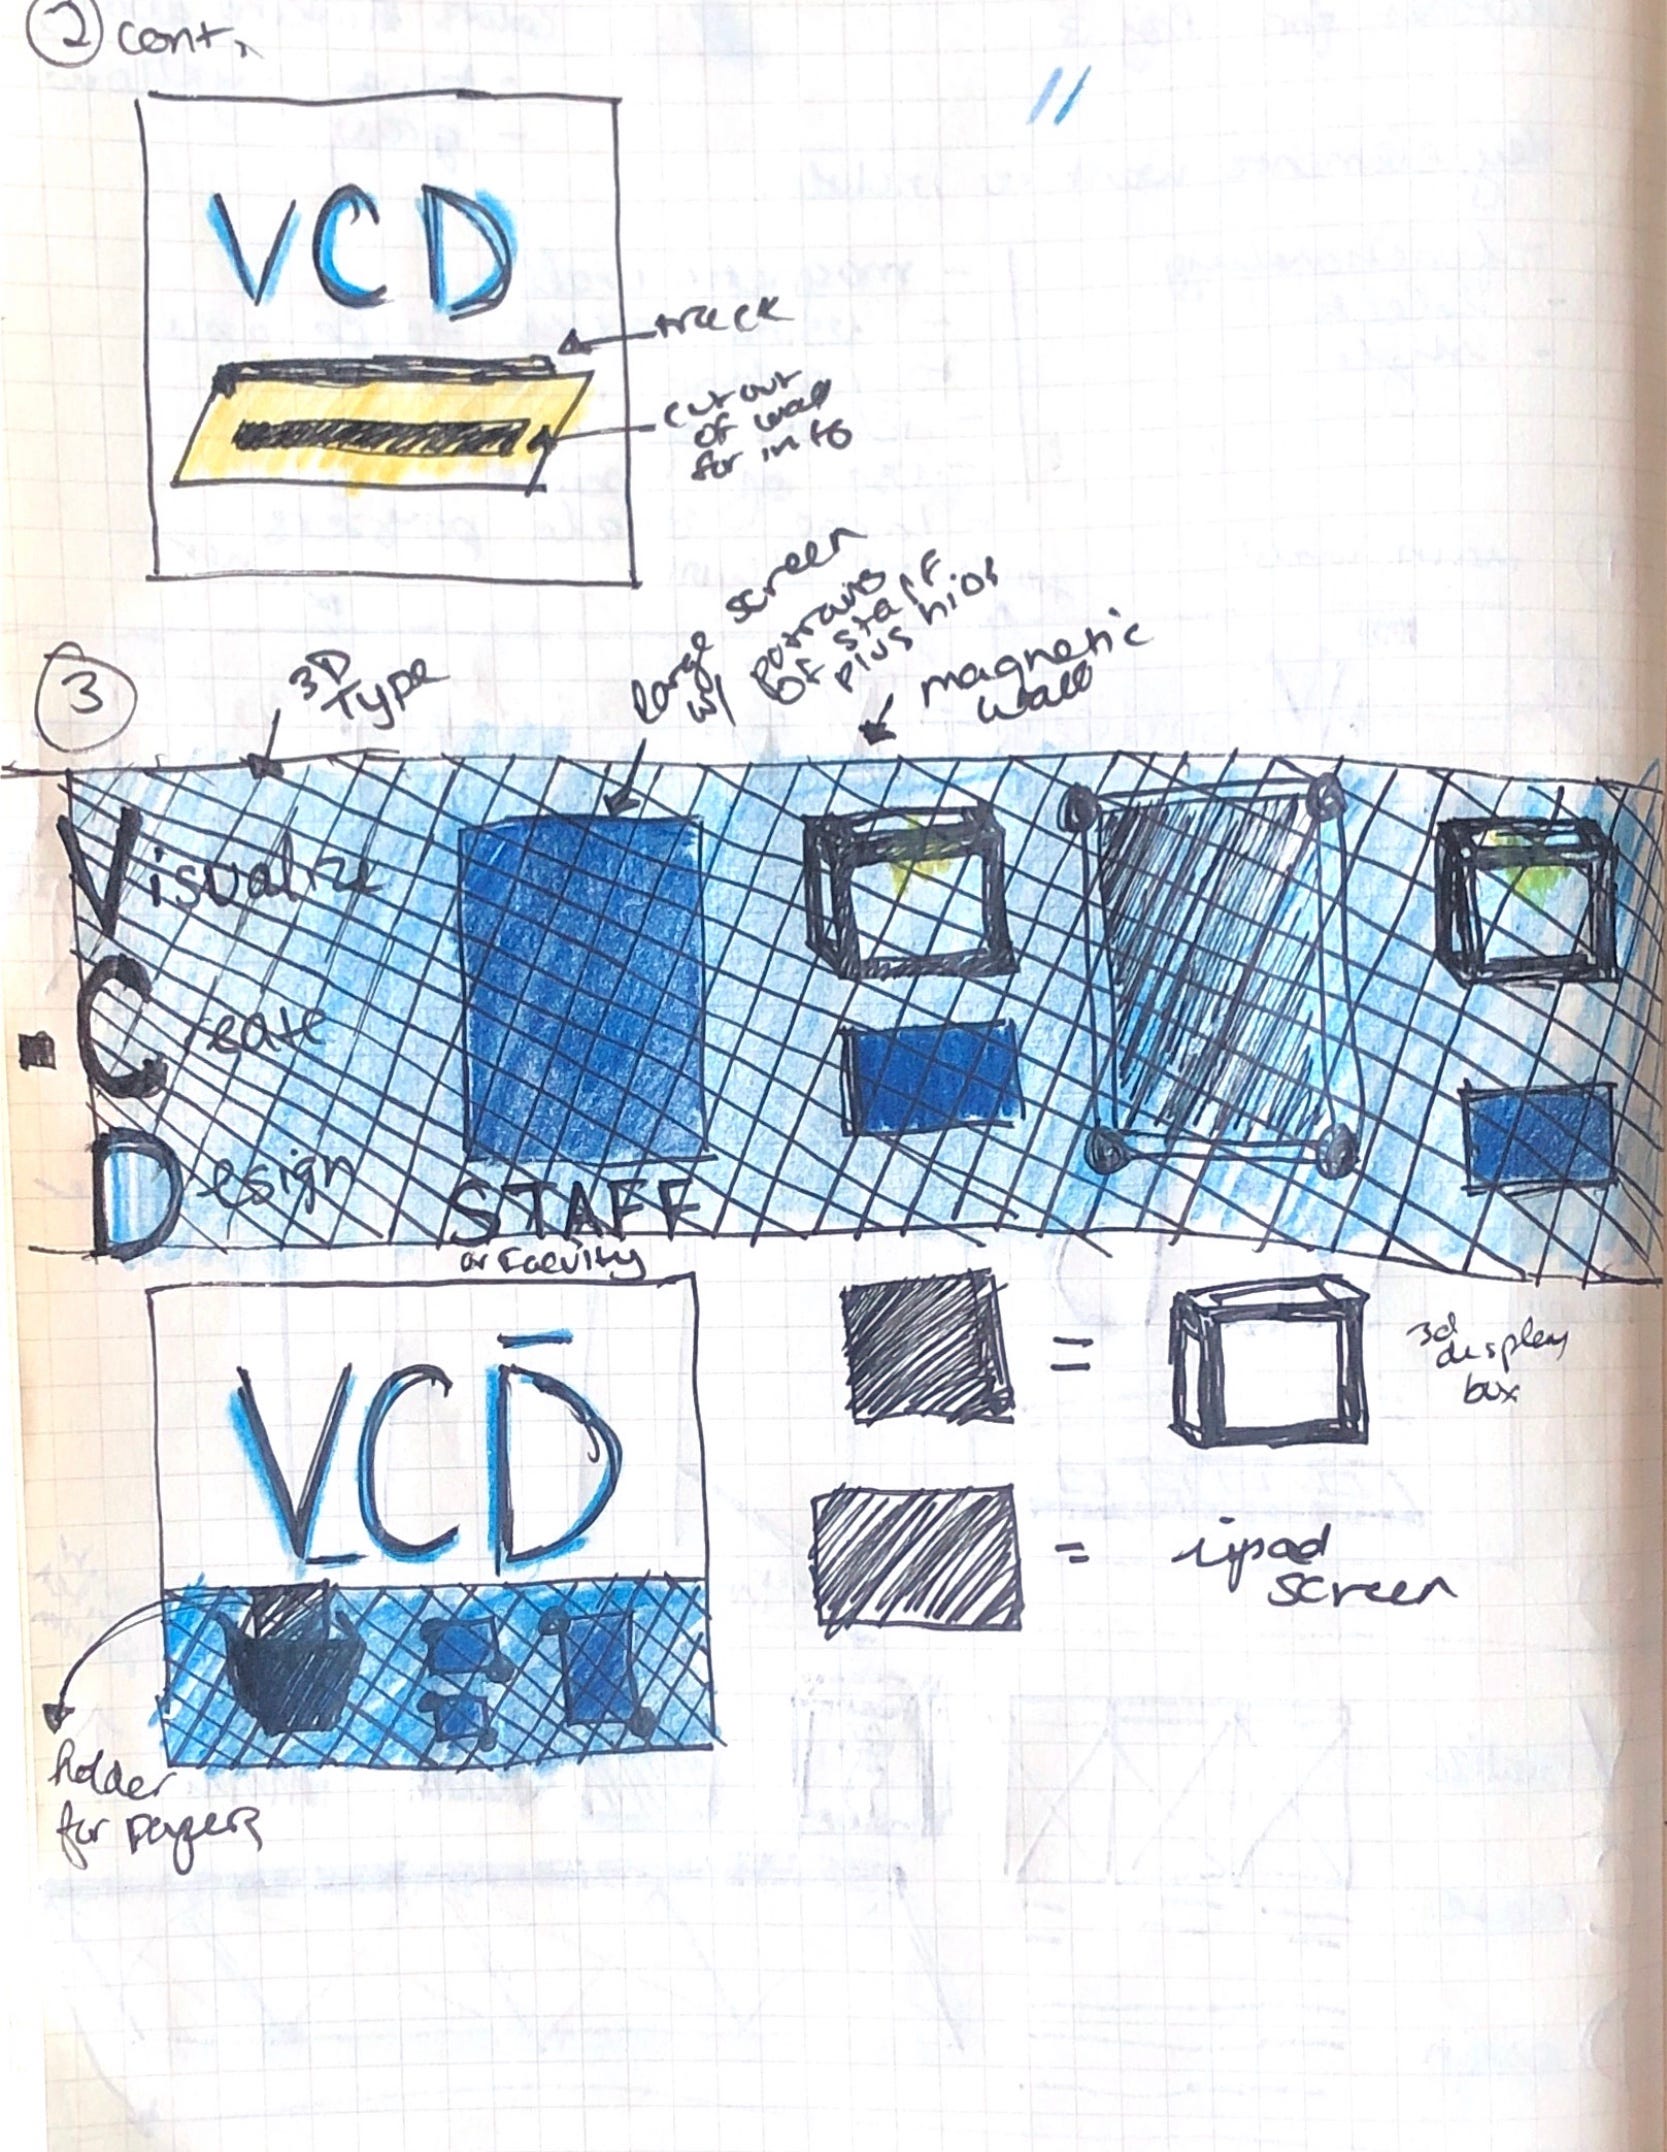 ② cont.
VCD
track
cut out
of wall
for info
③
3D
Type
large screen
w/ portraits
of staff
plus bios
magnetic
wall
Visualize
Create
Design
STAFF
or Faculty
VCD
=
3d
display
box
=
ipad
screen
holder
for papers